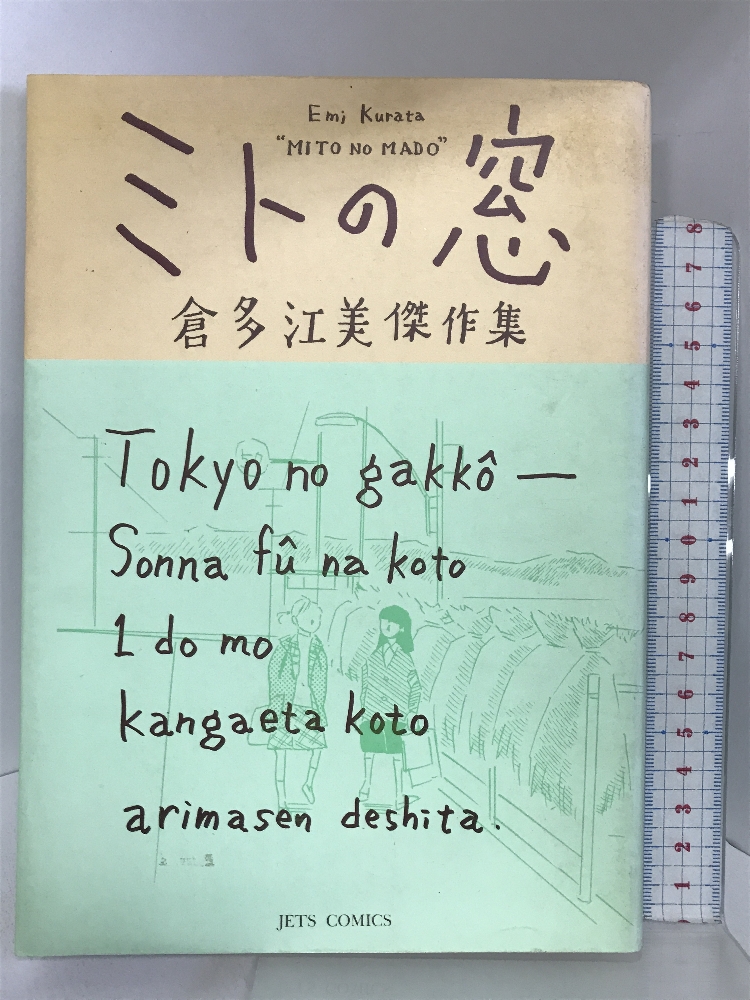 Emi Kurata
"MITO NO MADO"
ミトの窓
倉多江美傑作集
Tokyo no gakkô —
Sonna fû na koto
1 do mo
kangaeta koto
arimasen deshita.
JETS COMICS
8
7
6
5
4
3
2
1
0
9
8
7
6
5
4
3
2
1